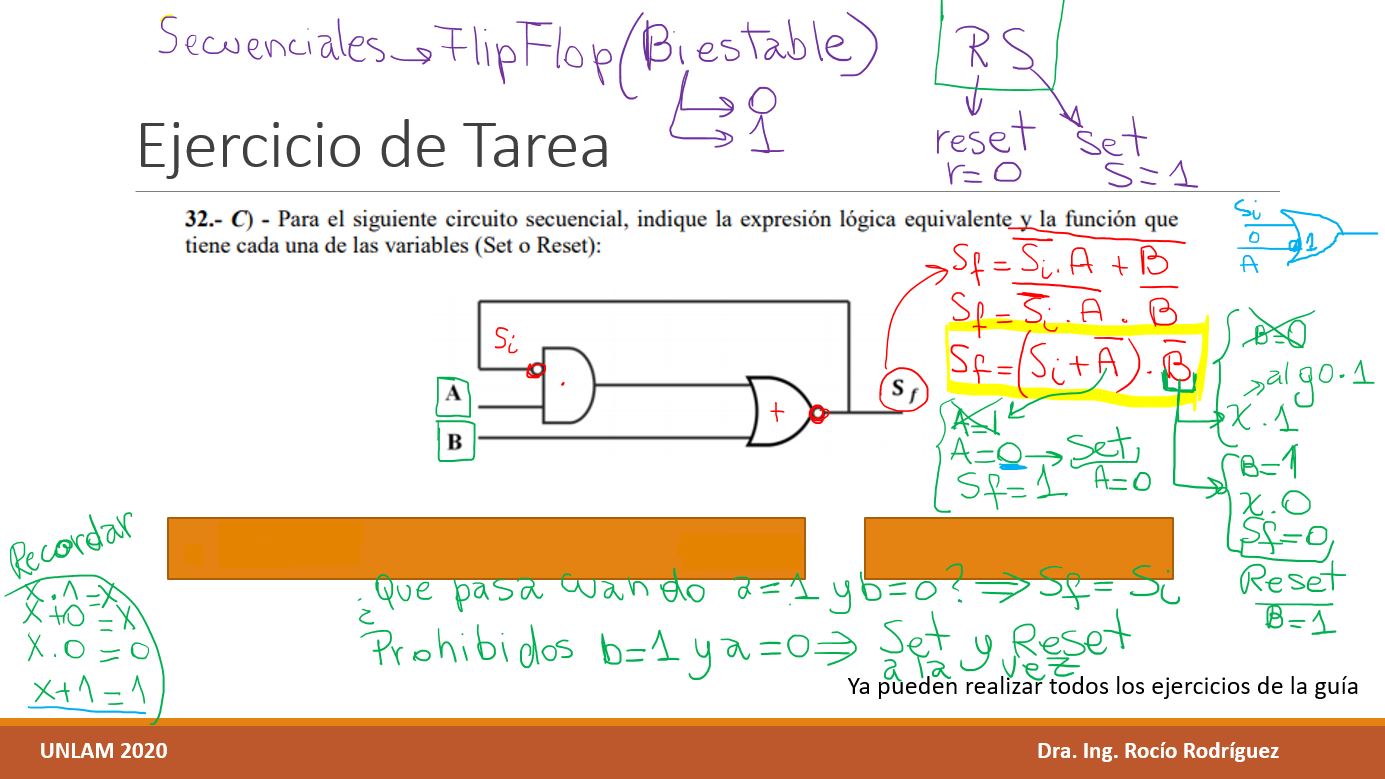 Secuenciales → FlipFlop (Biestable)
→ 0
→ 1
RS
reset
r=0
set
s=1
Ejercicio de Tarea
32.- C) - Para el siguiente circuito secuencial, indique la expresión lógica equivalente y la función que
tiene cada una de las variables (Set o Reset):
Si
0
A
1
Sf = \overline{\overline{Si}.A + B}
Sf = \overline{\overline{Si}.A} . \overline{B}
Sf = (Si + \overline{A}) . \overline{B}
Si
.
+
A
B
S f
A=1
A=0 → Set
Sf=1 A=0
B=0
algo.1
x.1
B=1
x.0
Sf=0
Reset
B=1
Recordar
x.1=x
x+0=x
x.0=0
x+1=1
¿Que pasa cuando a=1 y b=0? ⇒ Sf = Si
Prohibidos b=1 y a=0 ⇒ Set y Reset
a la vez
Ya pueden realizar todos los ejercicios de la guía
UNLAM 2020
Dra. Ing. Rocío Rodríguez